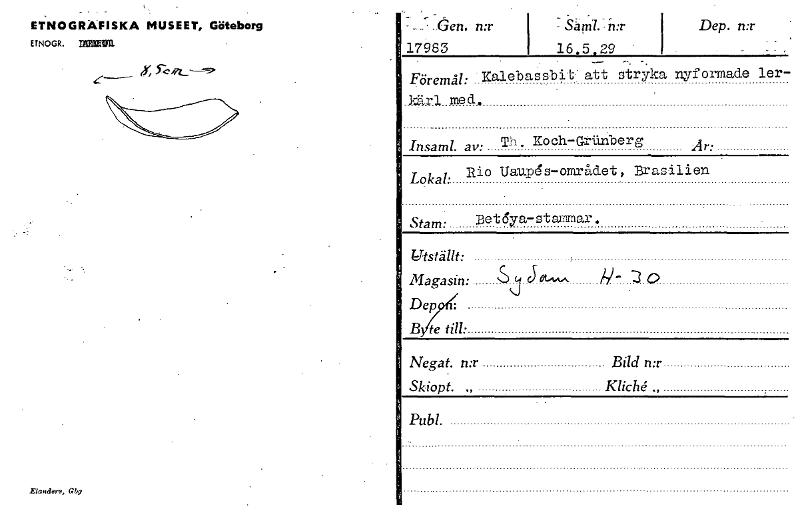 ETNOGRAFISKA MUSEET, Göteborg
ETNOGR.
8,5 cm
Elanders, Gbg
Gen. n:r Saml. n:r Dep. n:r
17983 16.5.29
Föremål: Kalebassbit att stryka nyformade ler-
kärl med.
Insaml. av: Th. Koch-Grünberg År:
Lokal: Rio Uaupés-området, Brasilien
Stam: Betóya-stammar.
Utställt:
Magasin: Sydam H-30
Depon:
Byte till:
Negat. n:r Bild n:r
Skiopt. „ Kliché „
Publ.